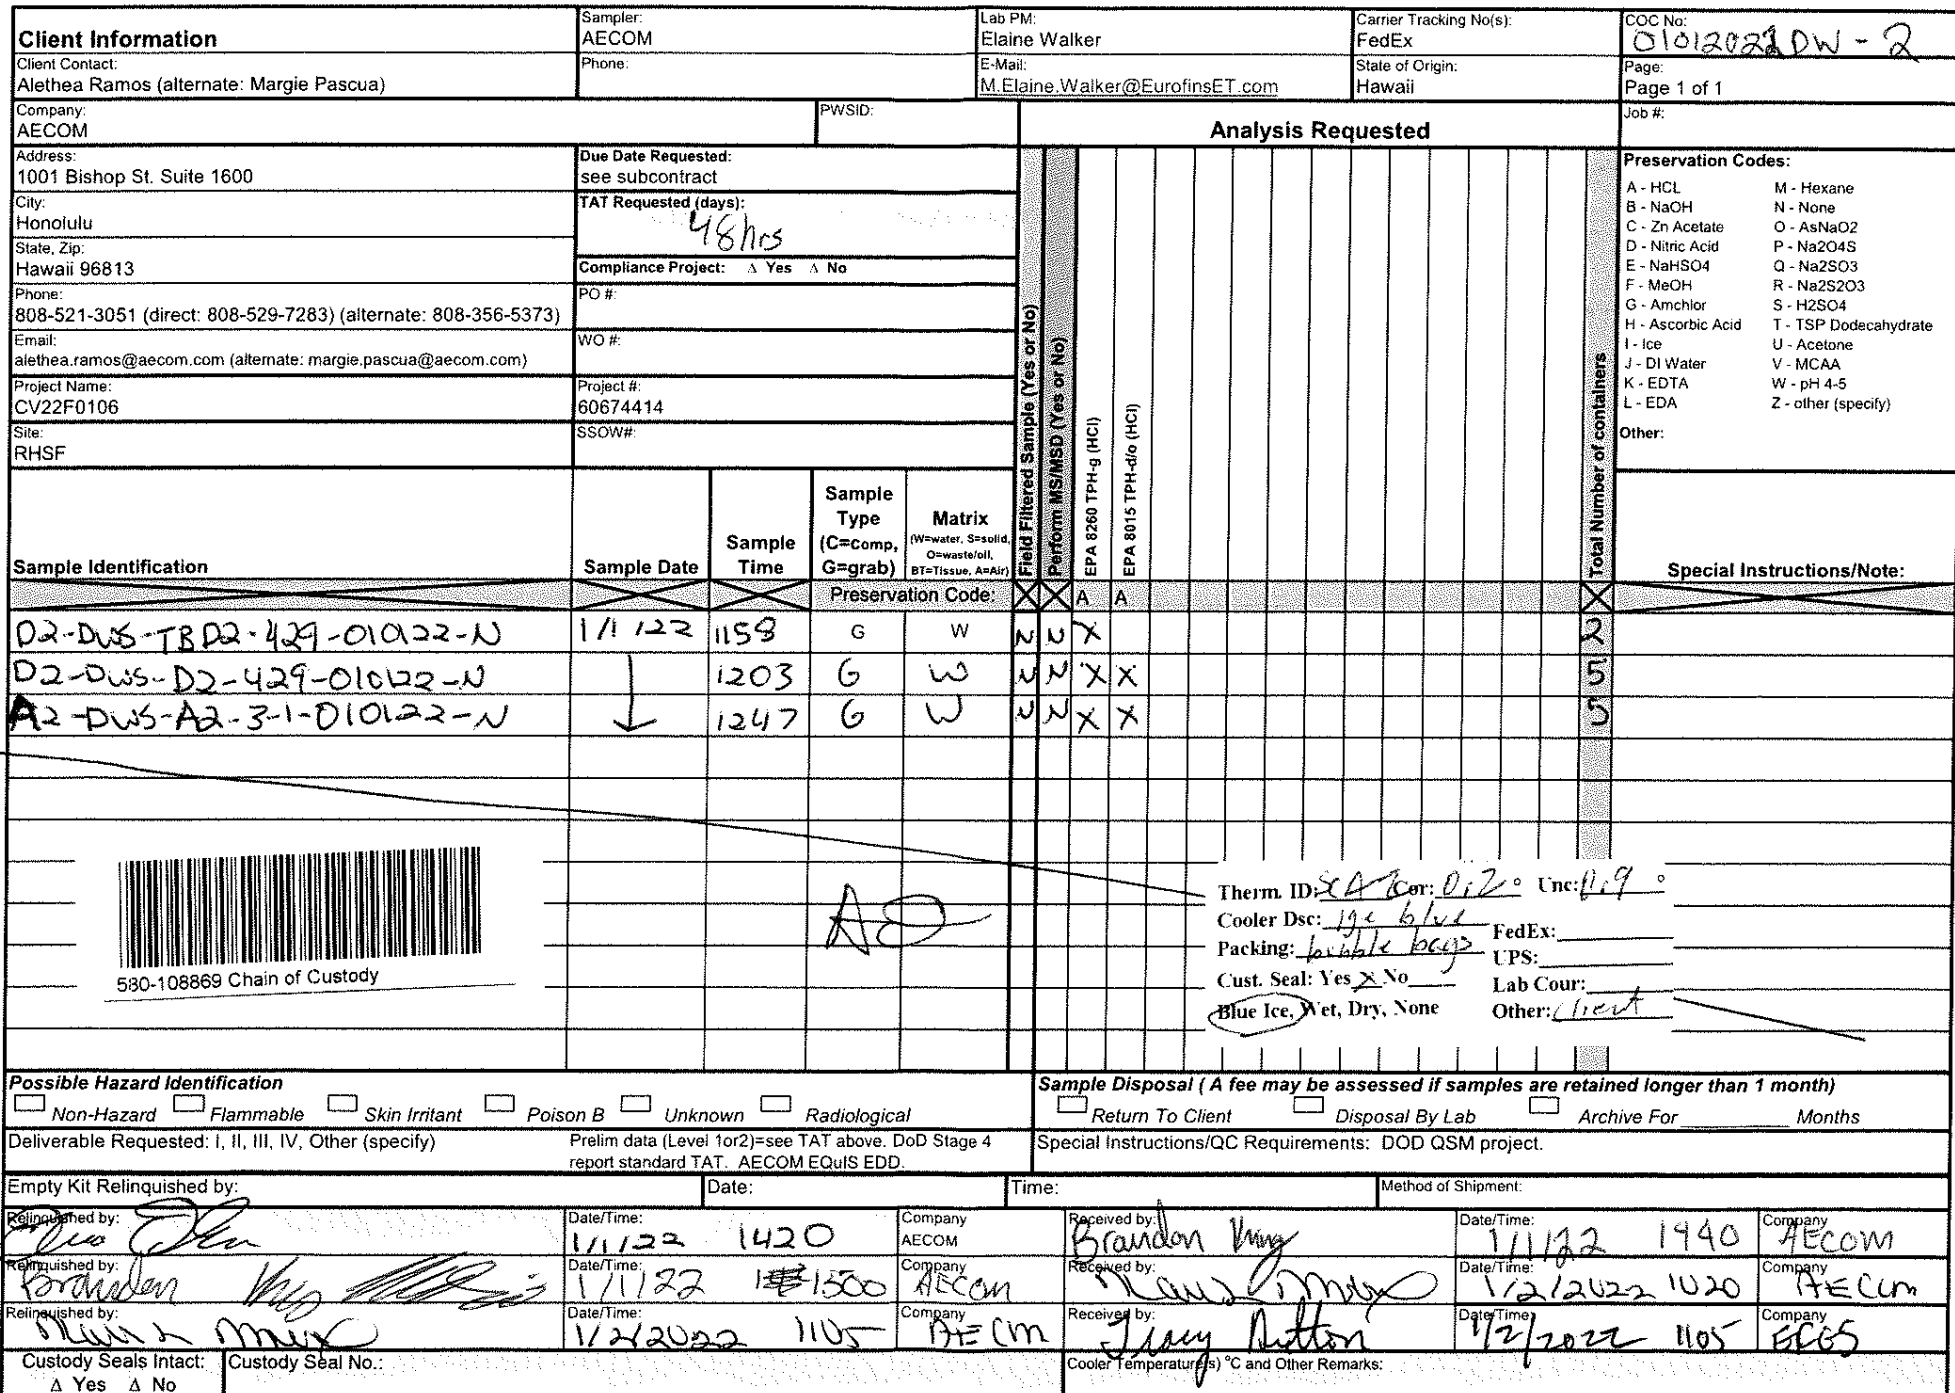 Client Information
Sampler:
AECOM
Lab PM:
Elaine Walker
Carrier Tracking No(s):
FedEx
COC No:
01012022DW-2
Client Contact:
Alethea Ramos (alternate: Margie Pascua)
Phone:
E-Mail:
M.Elaine.Walker@EurofinsET.com
State of Origin:
Hawaii
Page:
Page 1 of 1
Company:
AECOM
PWSID:
Analysis Requested
Job #:
Address:
1001 Bishop St. Suite 1600
Due Date Requested:
see subcontract
City:
Honolulu
TAT Requested (days):
48hrs
State, Zip:
Hawaii 96813
Compliance Project: Δ Yes Δ No
Phone:
808-521-3051 (direct: 808-529-7283) (alternate: 808-356-5373)
PO #:
Email:
alethea.ramos@aecom.com (alternate: margie.pascua@aecom.com)
WO #:
Project Name:
CV22F0106
Project #:
60674414
Site:
RHSF
SSOW#:
Field Filtered Sample (Yes or No)
Perform MS/MSD (Yes or No)
EPA 8260 TPH-g (HCl)
EPA 8015 TPH-d/o (HCl)
Total Number of containers
Preservation Codes:
A - HCL M - Hexane
B - NaOH N - None
C - Zn Acetate O - AsNaO2
D - Nitric Acid P - Na2O4S
E - NaHSO4 Q - Na2SO3
F - MeOH R - Na2S2O3
G - Amchlor S - H2SO4
H - Ascorbic Acid T - TSP Dodecahydrate
I - Ice U - Acetone
J - DI Water V - MCAA
K - EDTA W - pH 4-5
L - EDA Z - other (specify)
Other:
Sample Identification
Sample Date
Sample
Time
Sample
Type
(C=comp,
G=grab)
Matrix
(W=water, S=solid,
O=waste/oil,
BT=Tissue, A=Air)
Special Instructions/Note:
Preservation Code: X X A A X
D2-DWS-TBD2-429-010122-N 1/1/22 1158 G W N N X 2
D2-DWS-D2-429-010122-N 1203 G W N N X X 5
A2-DWS-A2-3-1-010122-N 1247 G W N N X X 5
580-108869 Chain of Custody
Therm. ID: Cor: 0.2° Unc: 0.9°
Cooler Dsc: lge blue
FedEx:
Packing: bubble bags
UPS:
Cust. Seal: Yes X No
Lab Cour:
Blue Ice, Wet, Dry, None
Other: Client
Possible Hazard Identification
Non-Hazard Flammable Skin Irritant Poison B Unknown Radiological
Sample Disposal ( A fee may be assessed if samples are retained longer than 1 month)
Return To Client Disposal By Lab Archive For Months
Deliverable Requested: I, II, III, IV, Other (specify)
Prelim data (Level 1or2)=see TAT above. DoD Stage 4
report standard TAT. AECOM EQuIS EDD.
Special Instructions/QC Requirements: DOD QSM project.
Empty Kit Relinquished by:
Date:
Time:
Method of Shipment:
Relinquished by:
Date/Time:
1/1/22 1420
Company
AECOM
Received by:
Brandon King
Date/Time:
1/1/22 1440
Company
AECOM
Relinquished by:
Brandon King
Date/Time:
1/1/22 1500
Company
AECOM
Received by:
Date/Time:
1/2/2022 1020
Company
AECOM
Relinquished by:
Date/Time:
1/2/2022 1105
Company
AECOM
Received by:
Date/Time:
1/2/2022 1105
Company
Custody Seals Intact:
Δ Yes Δ No
Custody Seal No.:
Cooler Temperature(s) °C and Other Remarks: